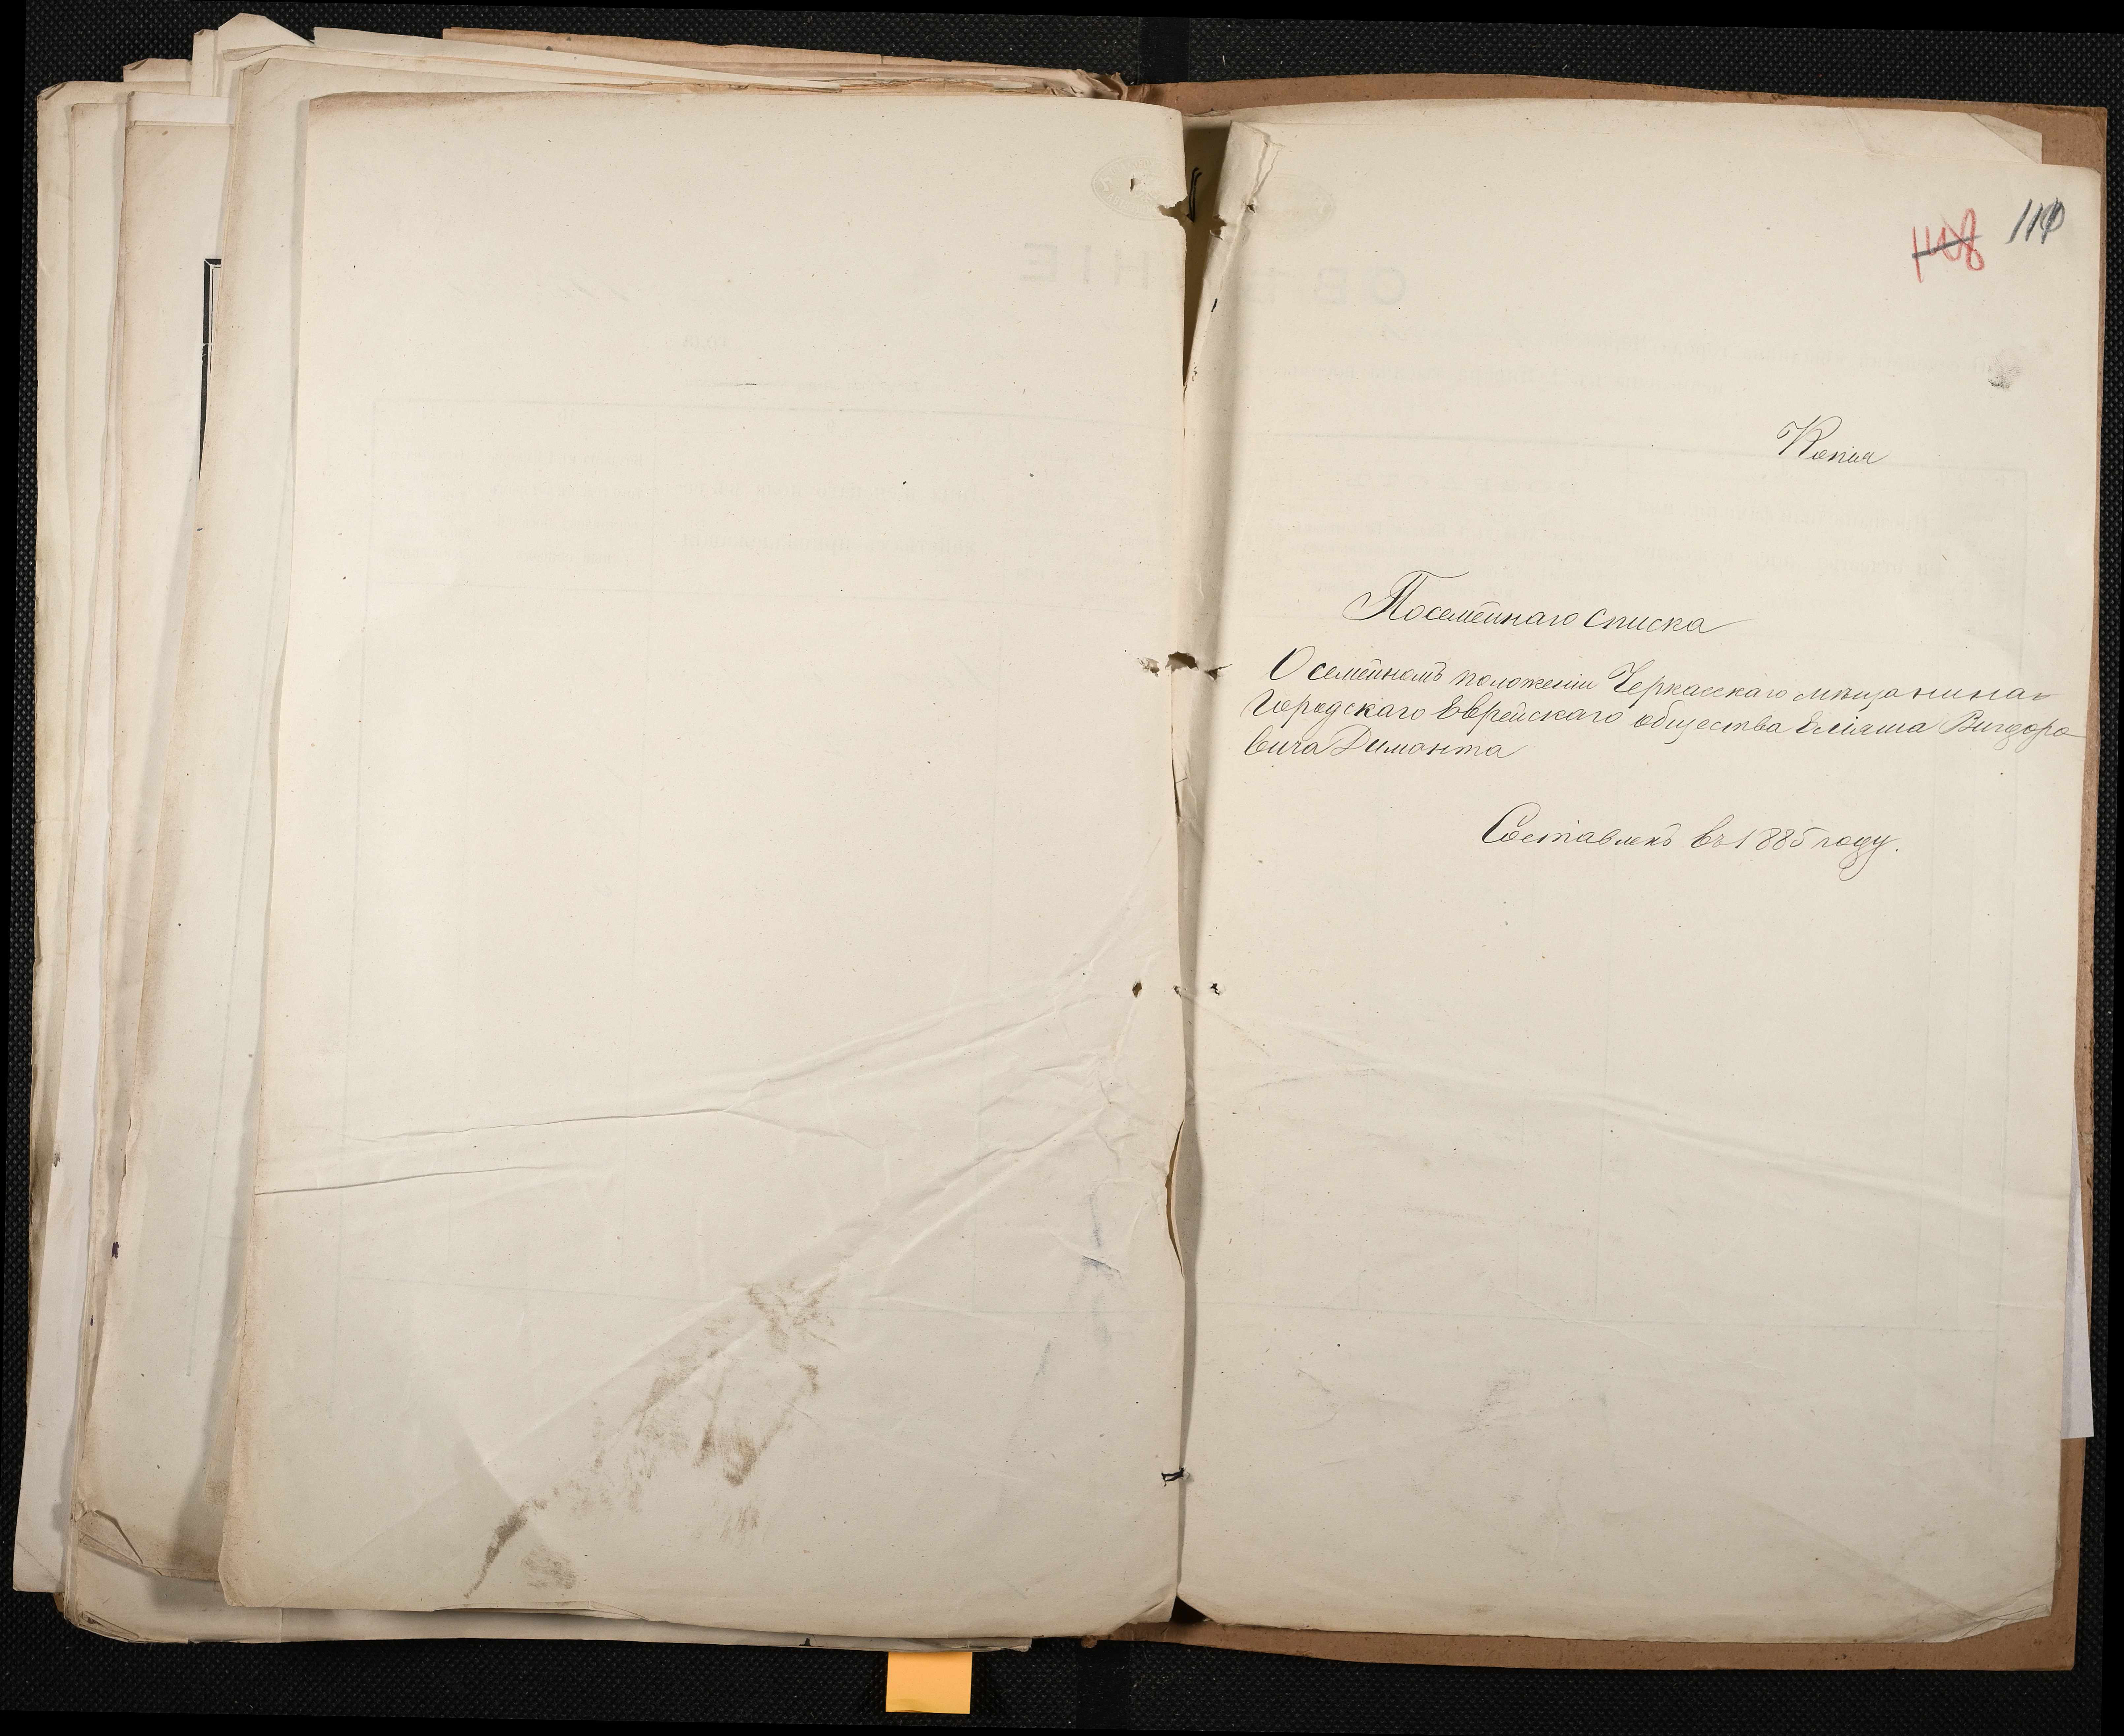 108 110
Копия
Посемейнаго списка
О семейномъ положеніи Черкасскаго мѣщанина
Городскаго Еврейскаго общества Еліяша Вигдоро
вича Диманта
Составленъ въ 1885 году.